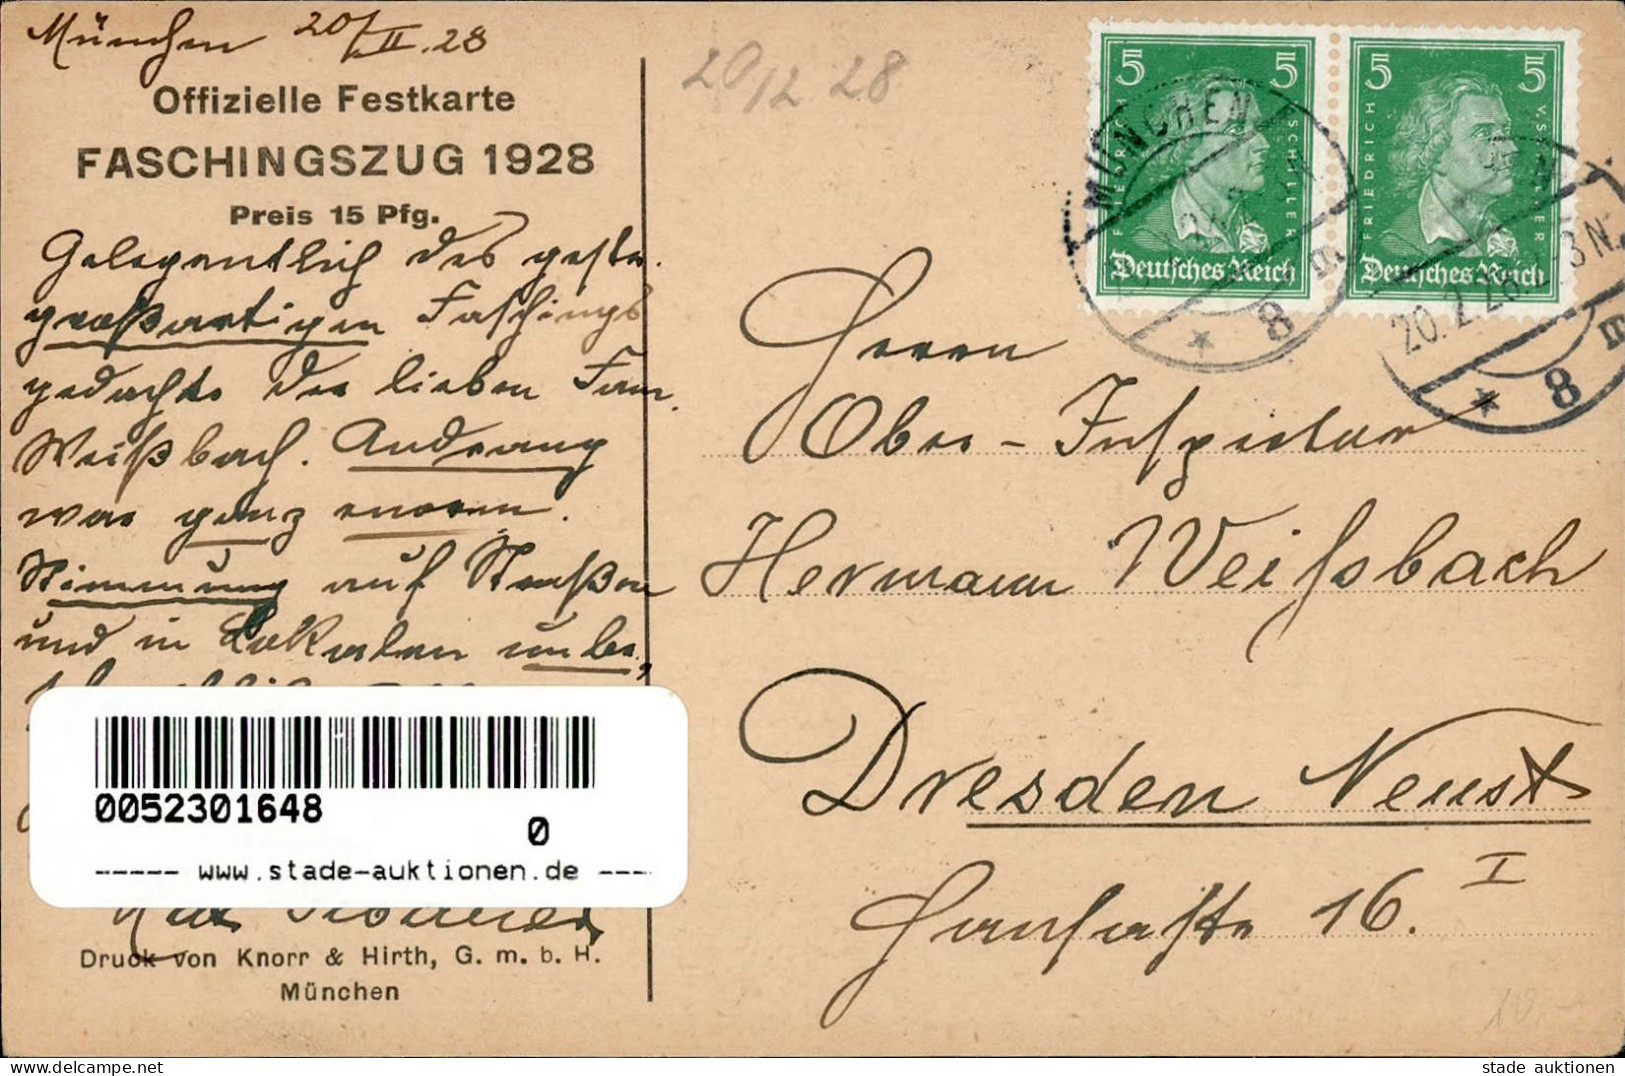 München 20/II.28
Offizielle Festkarte
FASCHINGSZUG 1928
Preis 15 Pfg.
Gelegentlich des gestr.
großartigen Faschings
gedachte der lieben Fam.
Weißbach. Andrang
war ganz enorm.
Stimmung auf Straßen
und in Lokalen unbe,
0052301648
0
----- www.stade-auktionen.de ----
Druck von Knorr & Hirth, G. m. b. H.
München
20/2 28
5 5
FRIEDRICH V. SCHILLER
Deutsches Reich
5 5
FRIEDRICH V. SCHILLER
Deutsches Reich
MÜNCHEN
* 8 B
20.2.28. 2-3 N.
* 8 B
Herrn
Ober-Inspektor
Hermann Weißbach
Dresden Neust
16. I
10.-
stade auktionen